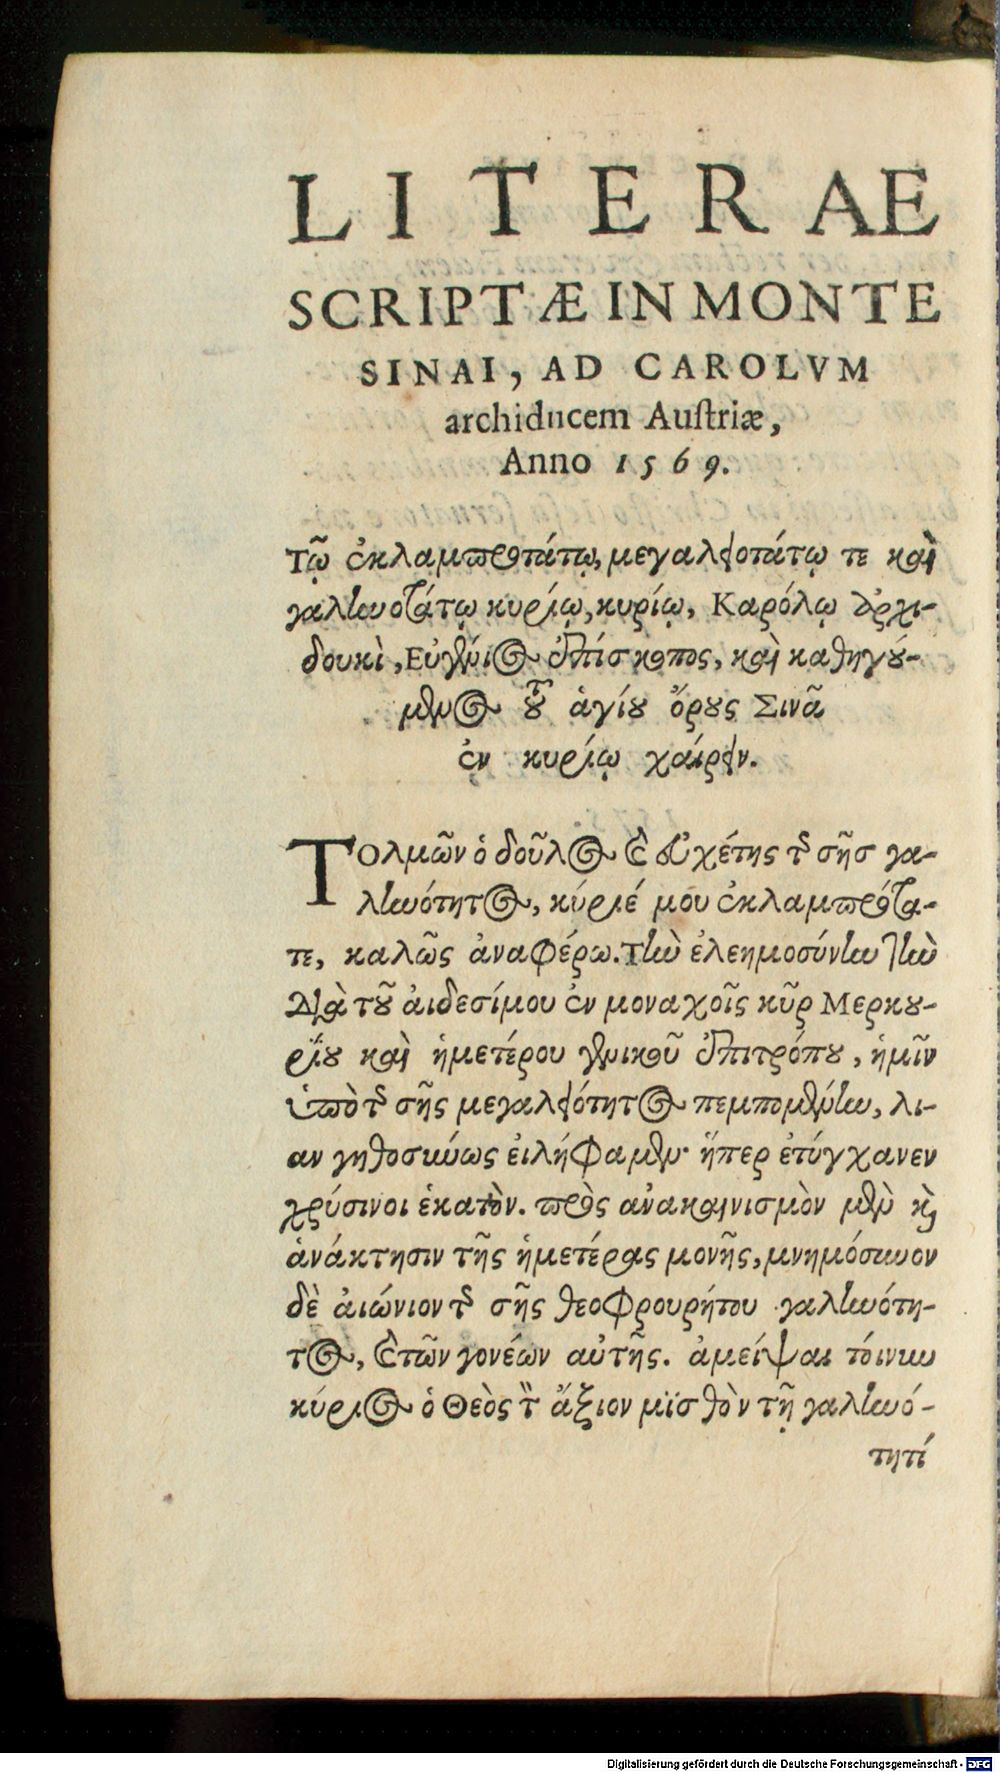 LITERAE
SCRIPTÆ IN MONTE
SINAI, AD CAROLVM
archiducem Auſtriæ,
Anno 1569.
Τῷ ἐκλαμπροτάτῳ, μεγαλειοτάτῳ τε καὶ
γαληνοτάτῳ κυρίῳ, κυρίῳ, Καρόλῳ ἀρχι-
δουκὶ, Εὐγένιος ἐπίσκοπος, καὶ καθηγού-
μενος τοῦ ἁγίου ὄρους Σινᾶ
ἐν κυρίῳ χαίρειν.
Τολμῶν ὁ δοῦλος καὶ εὐχέτης τῆς σῆς γα-
ληνότητος, κύριέ μου ἐκλαμπρότα-
τε, καλῶς ἀναφέρω. Τὴν ἐλεημοσύνην τὴν
Διὰ τοῦ αἰδεσίμου ἐν μοναχοῖς κῦρ Μερκου-
ρίου καὶ ἡμετέρου γενικοῦ ἐπιτρόπου, ἡμῖν
ὑπὸ τῆς σῆς μεγαλειότητος πεμπομένην, λι-
αν γηθοσύνως εἰλήφαμεν· ἥπερ ἐτύγχανεν
χρύσινοι ἑκατὸν. πρὸς ἀνακαινισμὸν μὲν καὶ
ἀνάκτησιν τῆς ἡμετέρας μονῆς, μνημόσυνον
δὲ αἰώνιον τῆς σῆς θεοφρουρήτου γαληνότη-
τος, καὶ τῶν γονέων αὐτῆς. ἀμείψαι τοίνυν
κύριος ὁ Θεὸς τὸν ἄξιον μϊσθὸν τῇ γαληνό-
τητί
Digitalisierung gefördert durch die Deutsche Forschungsgemeinschaft - DFG